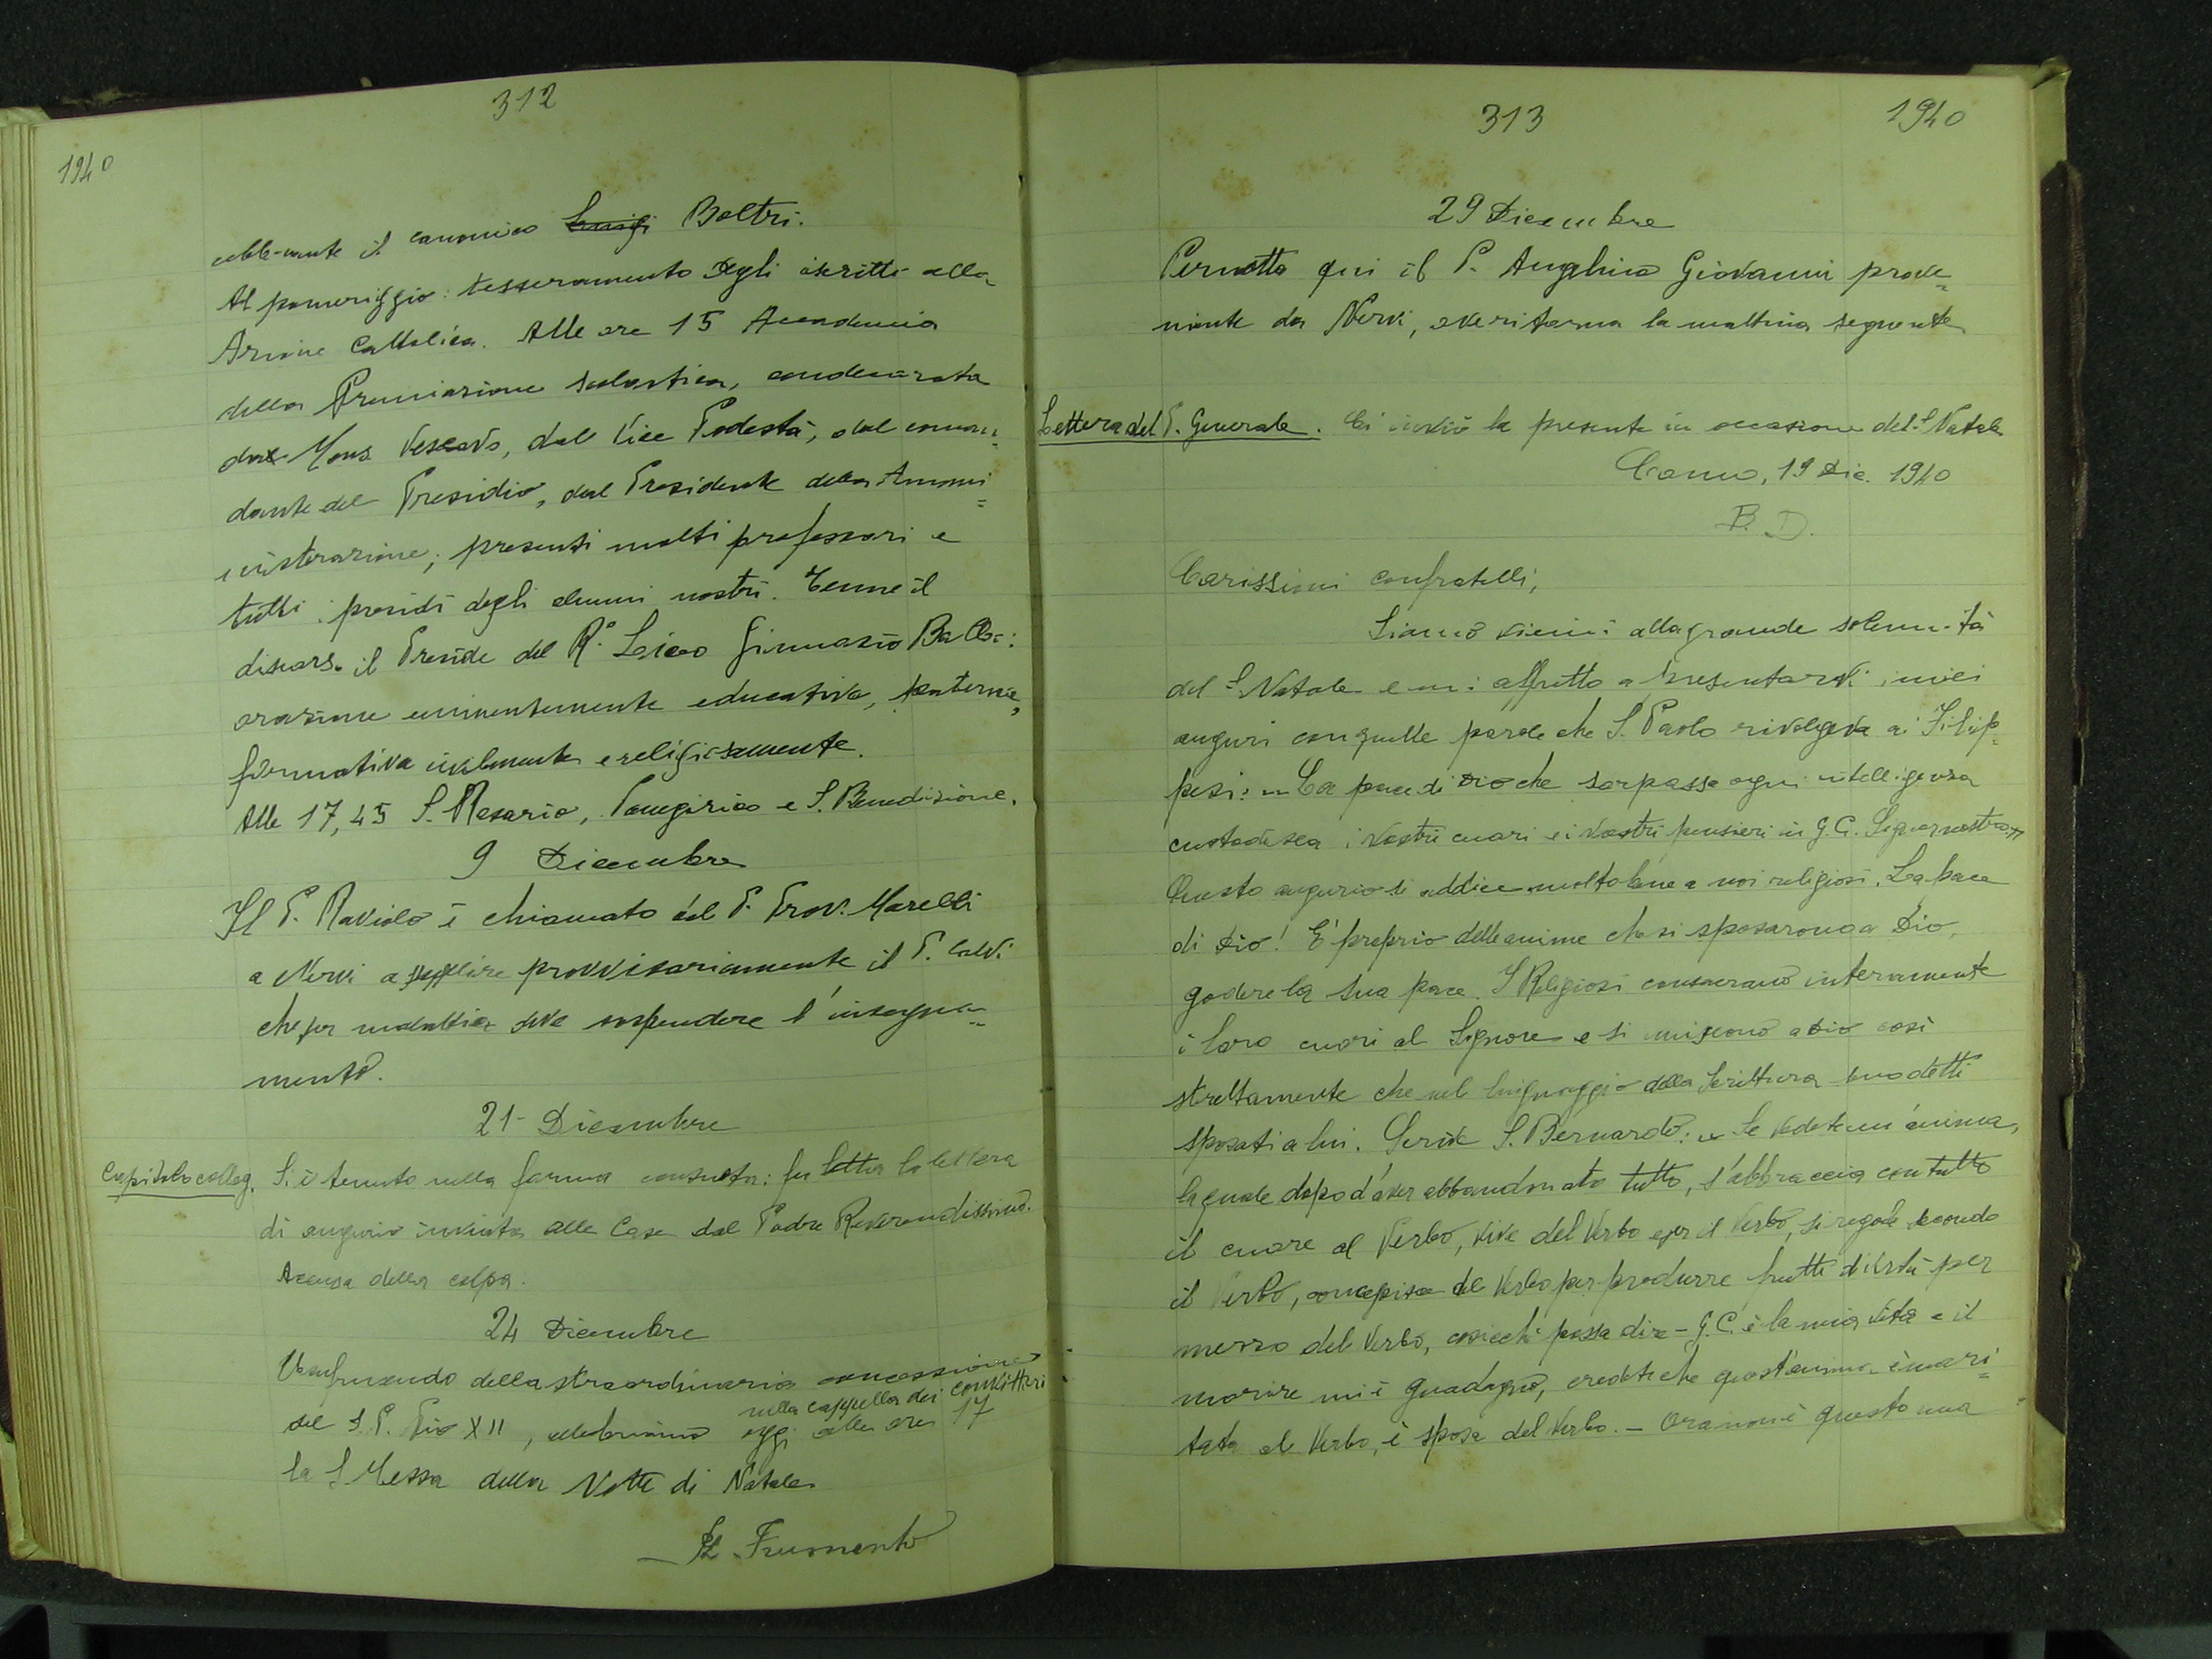 312
1940
il canonico Luigi Boltri.
Al pomeriggio: tesseramento degli iscritti alla
Azione Cattolica. Alle ore 15 Accademia
della Premiazione scolastica, condecorata
da Mons Vescovo, dal Vice Podestà, dal coman=
dante del Presidio, dal Presidente della Ammi=
nistrazione; presenti molti professori e
tutti i presidi degli alunni nostri. Tenne il
discorso il Preside del R.° Liceo Ginnasio Balbo:
orazione eminentemente educativa, paterna,
formativa civilmente e religiosamente.
Alle 17,45 S. Rosario, Panegirico e S. Benedizione.
9 Dicembre
Il P. Raviolo è chiamato dal P. Prov. Marelli
a Nervi a supplire provvisoriamente il P. Calvi
che per malattia deve sospendere l'insegna=
mento.
21 Dicembre
Capitolo colleg. Si è tenuto nella forma consueta: fu letta la lettera
di augurio inviata alle Case dal Padre Reverendissimo.
Accusa della colpa.
24 Dicembre
Usufruendo della straordinaria concessione
nella cappella dei convittori
del S. P. Pio XII, celebriamo oggi alle ore 17
la S. Messa della Notte di Natale
P. Frumento
313
1940
29 Dicembre
Pernotta qui il P. Anghino Giovanni prove=
niente da Nervi, ove ritorna la mattina seguente
Lettera del P. Generale. Ci inviò la presente in occasione del S. Natale
Como, 19 Dic. 1940
B. D.
Carissimi confratelli,
Siamo vicini alla grande solennità
del S. Natale e mi affretto a presentarvi i miei
auguri con quelle parole che S. Paolo rivolgeva ai Filip=
pesi: "La pace di Dio che sorpassa ogni intelligenza
custodisca i vostri cuori e i vostri pensieri in G. C. Signor nostro"
Questo augurio si addice molto bene a noi religiosi. La pace
di Dio! È proprio delle anime che si sposarono a Dio,
godere la sua pace. I Religiosi consacrano interamente
i loro cuori al Signore e si uniscono a Dio così
strettamente che nel linguaggio della Scrittura son detti
sposati a lui. Scrive S. Bernardo: "Se vedete un'anima,
la quale dopo d'aver abbandonato tutto, s'abbraccia con tutto
il cuore al Verbo, vive del Verbo e per il Verbo, si regola secondo
il Verbo, concepisce del Verbo per produrre frutti di virtù per
mezzo del Verbo, cosicché possa dire - G. C. è la mia vita e il
morire mi è guadagno, credete che quest'anima è mari=
tata al Verbo, è sposa del Verbo. - Ora non è questo una